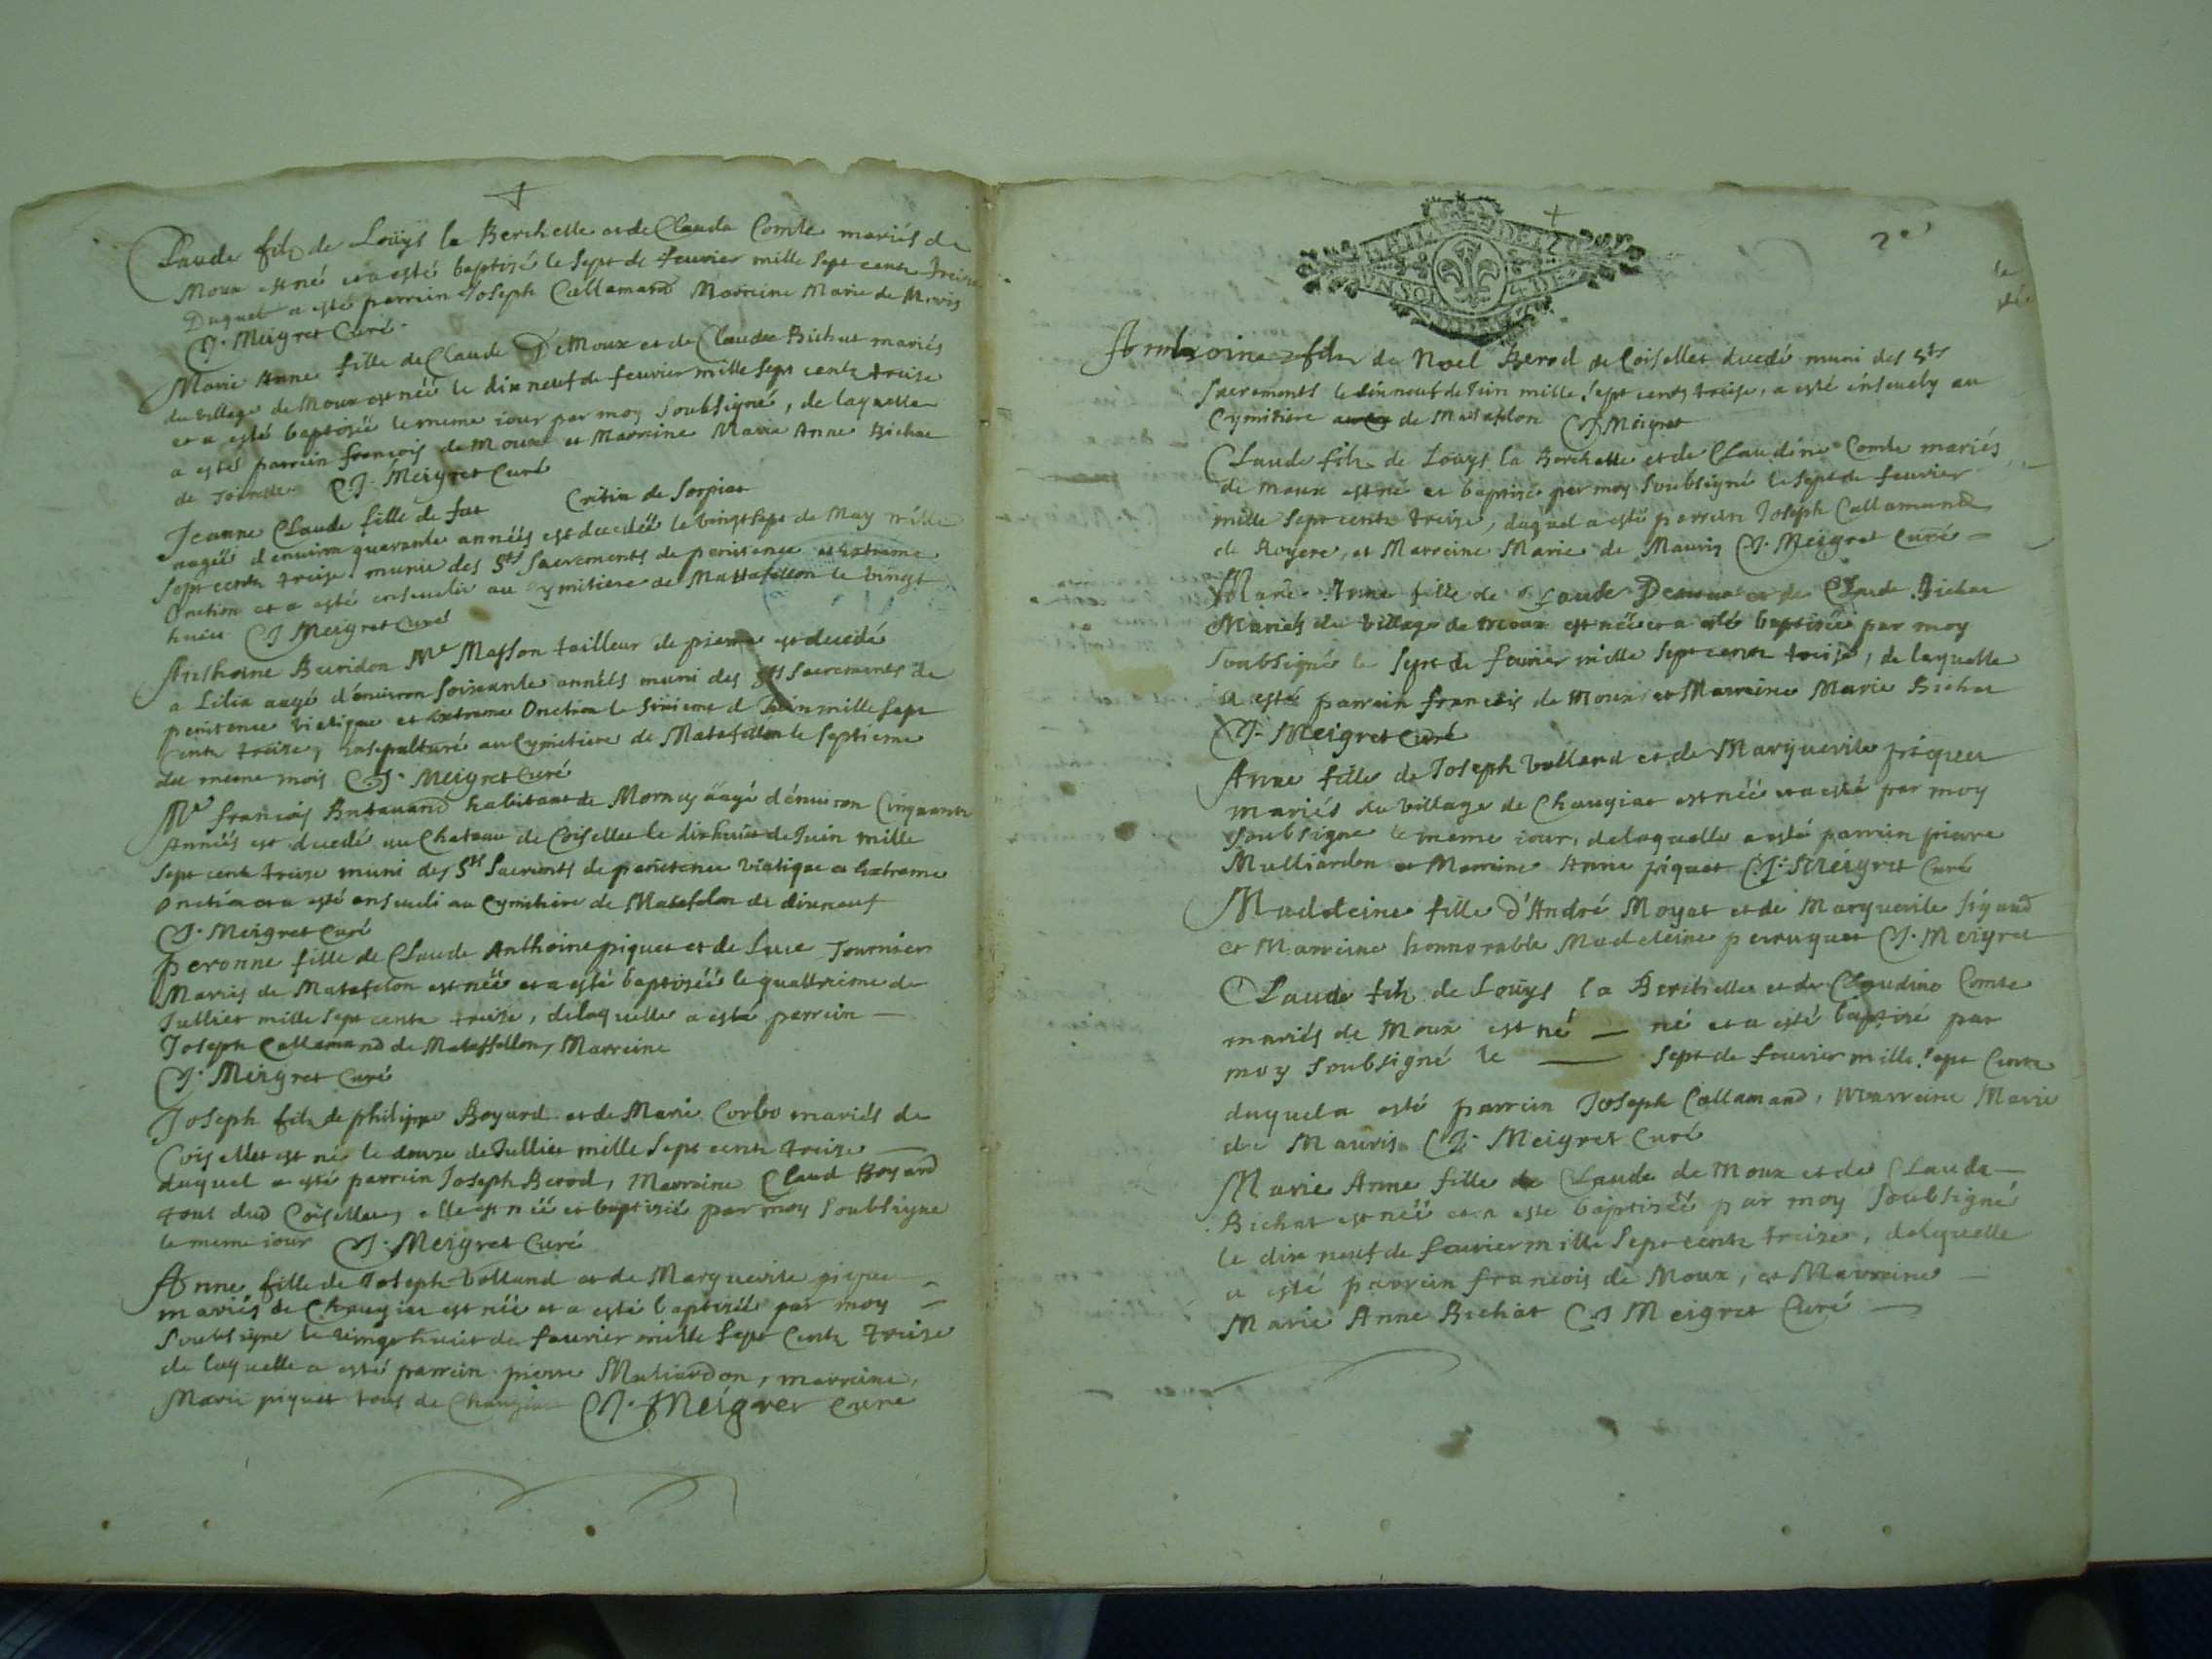 Claude fils de Loüys la Berchette et de Clauda Comte mariés de
Moux est né et a esté baptisé le sept de feuvrier mille sept cents treize
Duquel a esté parrein Joseph Callamand Marreine Marie de Mavris
J. Meigret Curé
Marie Anne fille de Claude De Moux et de Claudee Bichat mariés
du village de Moux est néé le dix neuf de feuvrier mille sept cents treize
et a esté baptiséé le meme iour par moy soubsigné, de laquelle
a estés parrein françois de Moux et Marreine Marie Anne Bichat
de J. Meigret Curé
Jeanne Claude fille de fut Cretin de Sorpiat
aagéé d'environ quarante annéés est decedéé le vingt sept de May mille
sept cents treize munie des Sts Sacrements de penitence et Extreme
Onction et a esté ensevelie au Cymitiere de Mattafellon le vingt
huict J Meigret Curé
Anthoine Buridon Me Masson tailleur de pierre est decedé
a Lilia aagé d'environ soixante annéés muni des Sts Sacrements de
penitence viatique et extreme Onction le sixieme d Juin mille sept
cents treize, ensepulturé au Cymetiere de Matafellon le septieme
du meme mois J. Meigret Curé
Me françois habitant de Mornay aagé d'environ Cinquante
Annéés est decedé au Chateau de Coisellet le dixhuict de Juin mille
sept cents treize muni des Sts Sacremts de penitence viatique et Extreme
Onction et a esté enseveli au Cymitiere de Matafelon le dixneuf
J. Meigret Curé
Peronne fille de Claude Anthoine piquet et de Luce Tournier
Mariés de Matafelon est néé et a esté baptiséé le quattrieme de
Julliet mille sept cents treize, de laquelle a esté parrein
Joseph Callamand de Mataffellon, Marreine
J. Meigret Curé
Joseph fils de philippe Boyard et de Marie Corbo mariés de
Coisellet est né le douze de Julliet mille sept cents treize
duquel a esté parrein Joseph Berod, Marreine Claud Boyard
tous dud Coisellet, elle est néé et baptiséé par moy soubsigne
le meme iour J. Meigret Curé
Anne fille de Joseph Volland et de Marguerite piquet
mariés de Chaugiat est néé et a esté baptiséé par moy
Soubsigne le vingt huict de feuvrier mille sept Cents treize
de laquelle a esté parrein pierre Muliardon, marreine,
Marie piquet tous de Chaugiat J. Meigret Curé
2e
Anthoine fils de Noel Berod de Coisellet decedé muni des Sts
Sacrements le dixneuf de Juin mille sept cents treize, a esté ensevely au
Cymitiere de Matafelon J Meigret
Claude fils de Loüys la Berchette et de Claudine Comte mariés
de Moux est né et baptisé par moy soubsigné le sept de feuvrier
mille sept cents treize, duquel a esté parrein Joseph Callamand
de Royere, et Marreine Marie de Mauris J. Meigret Curé
Marie Anne fille de Claude Demoux et de Claude Bichat
Mariés du Village de Moux est néé et a esté baptiséé par moy
soubsigné le sept de feuvrier mille sept cents treize, de laquelle
a esté parrein françois de Moux et Marreine Marie Bichat
J. Meigret Curé
Anne fille de Joseph Volland et de Marguerite piquet
mariés du village de Chaugiat est néé et a esté par moy
soubsigne le meme iour, de laquelle a esté parrein pierre
Mulliardon et Marreine Anne piquet J. Meigret Curé
Madeleine fille d'André Moyat et de Marguerite
et Marreine honnorable Madeleine perruquet J. Meigret
Claude fils de Loüys la Berchette et de Claudine Comte
mariés de Moux est né — né et a esté baptisé par
moy soubsigné le — sept de feuvrier mille sept Cents
duquel a esté parrein Joseph Callamand, Marreine Marie
de Mauris J. Meigret Curé
Marie Anne fille de Claude de Moux et de Clauda
Bichat est néé et a esté baptiséé par moy soubsigné
le dix neuf de feuvrier mille sept cents treize, delaquelle
a esté parrein françois de Moux, et Marreine
Marie Anne Bichat J Meigret Curé